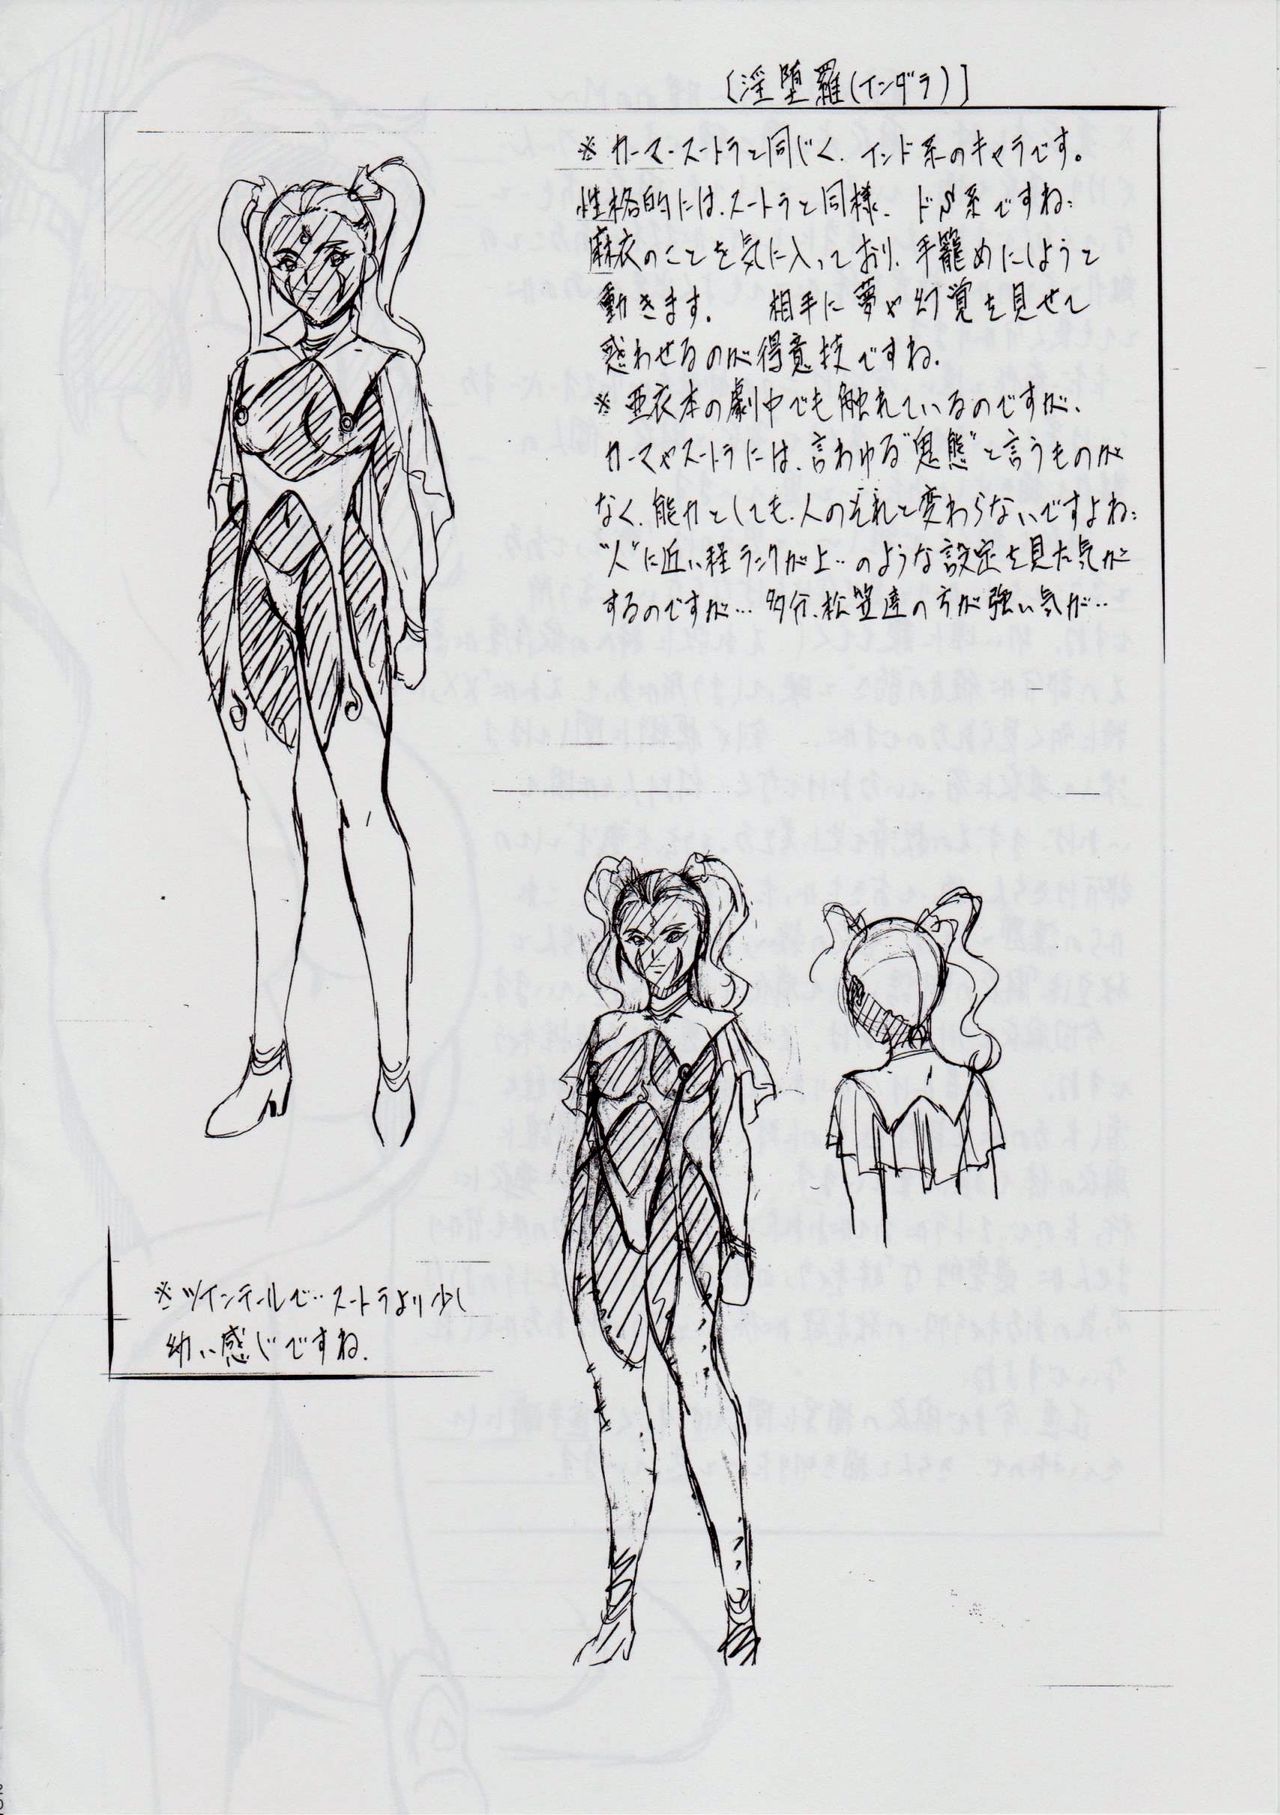 〔淫堕羅(インダラ)〕
※カーマ・スートラと同じく、インド系のキャラです。
性格的には、スートラと同様、ドS系ですね。
麻衣のことを気に入っており、手籠めにしようと
動きます。 相手に夢や幻覚を見せて
惑わせるのが得意技ですね。
※亜衣本の劇中でも触れているのですが、
カーマやスートラには、言わゆる"鬼態"と言うものが
なく、能力としても、人のそれと変わらないですよね。
"人"に近い程ランクが上…のような設定を見た気が
するのですが…多分、松笠達の方が強い気が…
※ツインテールで…スートラより少し
幼い感じですね。